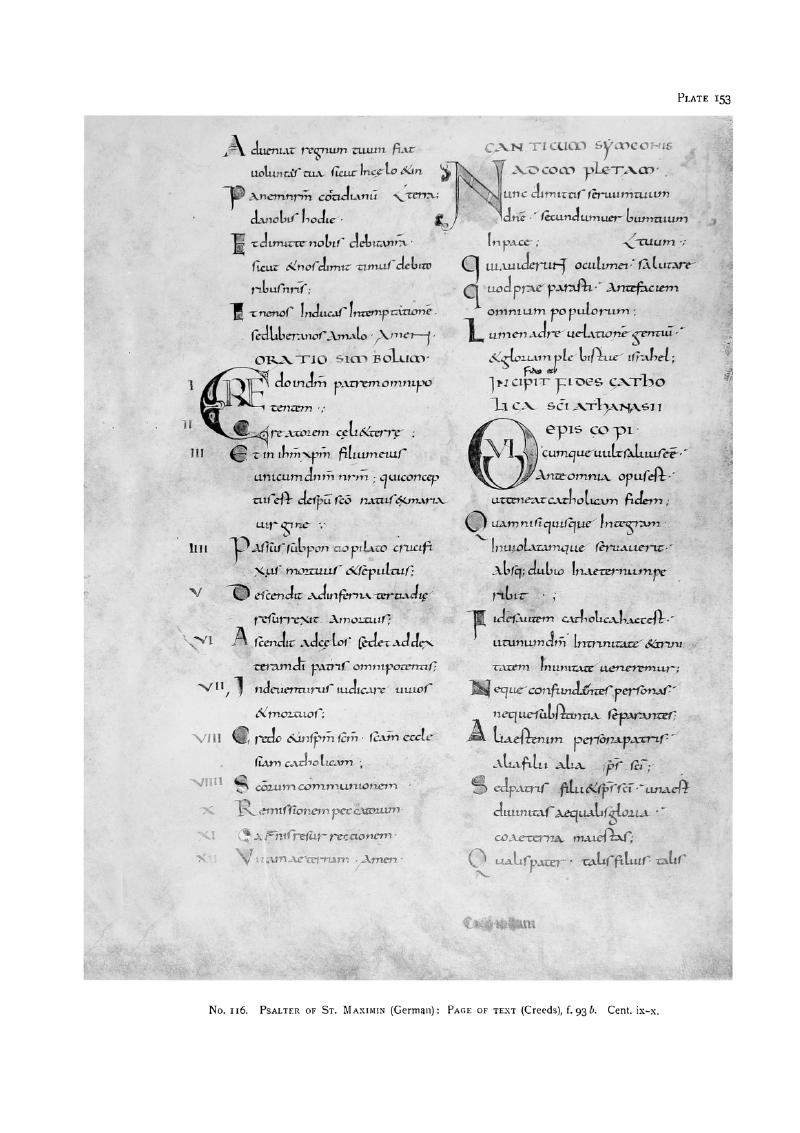 PLATE 153
Adueniat regnum tuum fiat
uoluntas tua sicut Incęlo &in
Panemnrm̄ cotidianū terra;
danobis hodie ·
Et dimitte nobis debitanr̄a ·
sicut &nosdimit timus debito
ribusnris̄;
Et nenos Inducas Intemptationē ·
sedliberanos Amalo · Amen
ORATIO SIMBOLUM ·
I CREdo indm̄ patrem omnipo
tentem ·;
II Creatorem cęli&terrę ;
III Et in ihm̄ xpm̄ filium eius
unicum dnm̄ nrm̄ ; qui concep
tus est despū scō natus&maria
uirgine ·;
IIII Passus subpontiopilato crucifi
xus mortuus &sepultus;
V Descendit adinferna tertiadię
resurrexit Amortuis;
VI Ascendit adcęlos sedet addex
teramdī patris omnipotentis;
VII, Indeuenturus iudicare uiuos
&mortuos;
VIII Credo &inspm̄ scm̄ · scam̄ eccle
siam catholicam ;
VIIII Scōrum communionem
X Remissionem peccatorum ·
XI Carnis resurrectionem ·
XII Vitam aeternam · Amen ·
CANTICUM SYMEONIS
AD COMPLETAM ·
Nunc dimittis seruumtuum
dnē · secundumuerbumtuum
Inpace ; tuum ·;
Quiauiderunt oculimei · salutare
quodprae parasti · Antefaciem
omnium populorum ;
Lumen adreuelationē gentiū ·
&gloriam plebistuę israhel;
INCIPIT FIDES CATHO
LICA SCĪ ATHANASII
EPISCOPI ·
QVIcumque uult saluus eē ·
Ante omnia opus est ·
utteneat catholicam fidem;
Quamnisi quisque Integram
Inuiolatamque seruauerit ·
Absq; dubio Inaeternumpe
ribit · ;
Fidesautem catholicahaecest ·
utunumdm̄ Intrinitate &trini
tatem Inunitate ueneremur;
Neque confundentes personas ·
nequesubstantia separantes;
Aliaestenim personapatris ·
Aliafilii alia sps̄ scī ;
Sedpatris filii&sps̄ scī · unaest
diuinitas aequalisgloria ·
coaeterna maiestas;
Qualispater · talisfilius talis
No. 116. PSALTER OF ST. MAXIMIN (German): PAGE OF TEXT (Creeds), f. 93 b. Cent. ix-x.